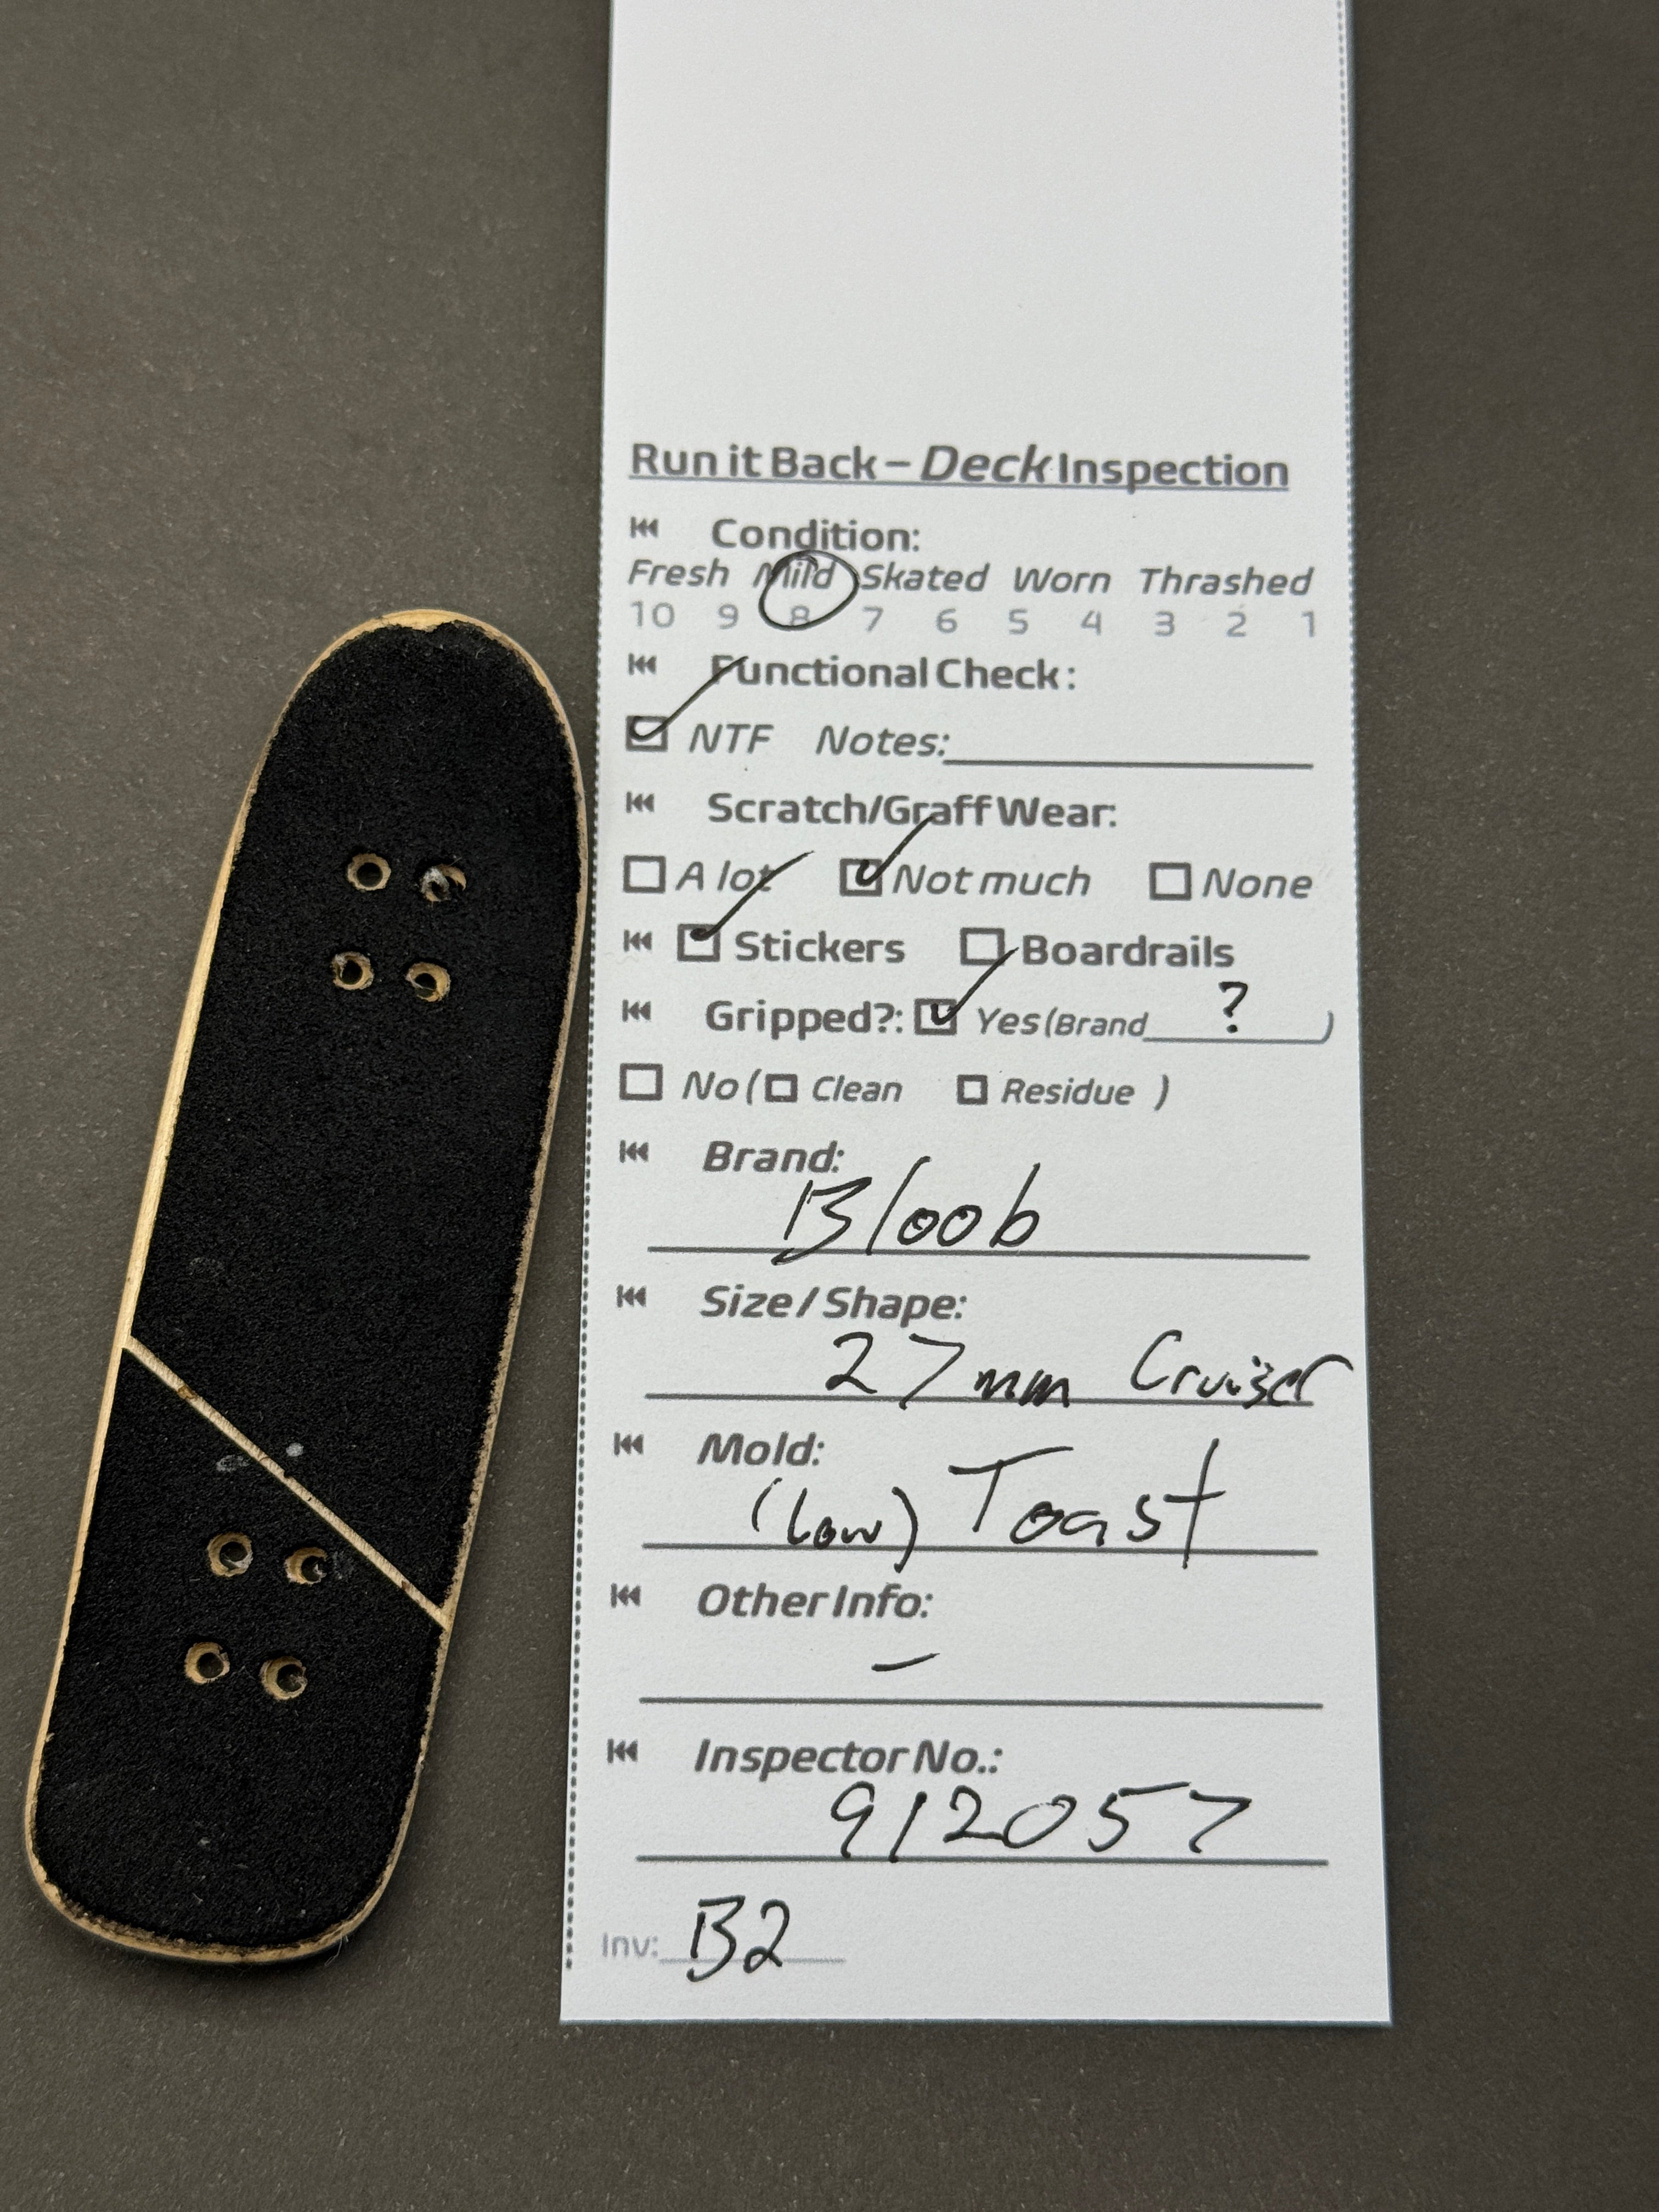 Run it Back – Deck Inspection
Condition:
Fresh Mild Skated Worn Thrashed
10 9 8 7 6 5 4 3 2 1
Functional Check:
NTF Notes:
Scratch/Graff Wear:
A lot Not much None
Stickers Boardrails
Gripped?: Yes (Brand ? )
No ( Clean Residue )
Brand:
Bloob
Size / Shape:
27mm Cruiser
Mold:
(low) Toast
Other Info:
–
Inspector No.:
912057
Inv: B2